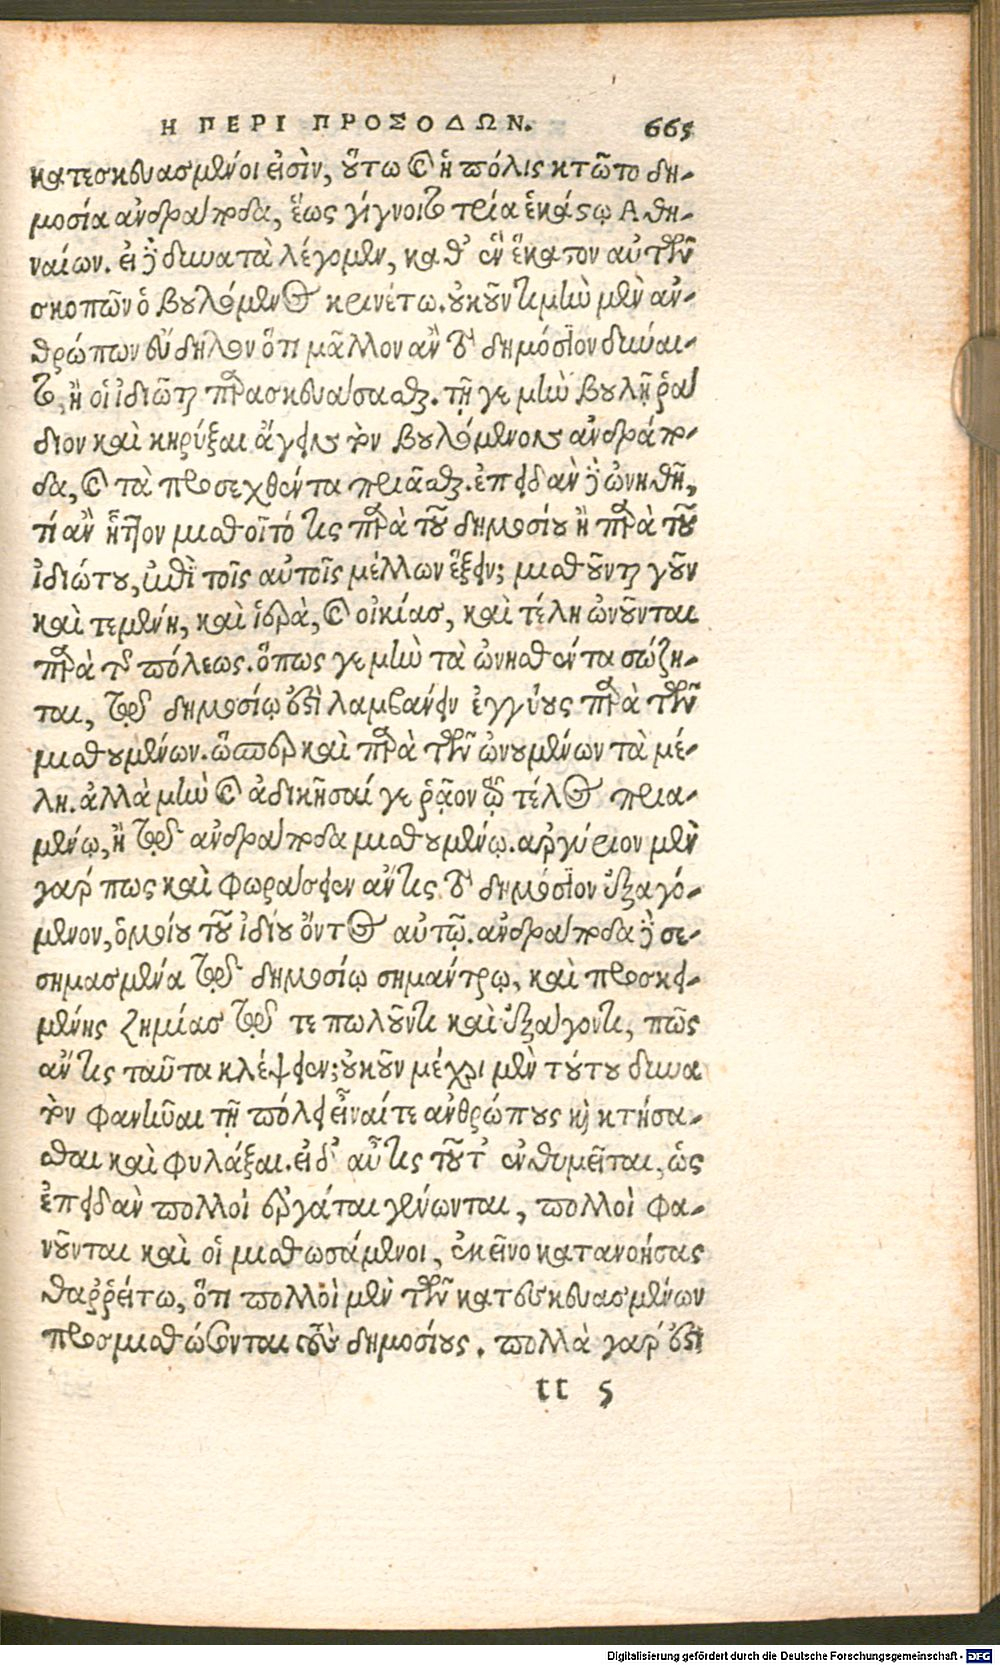 Η ΠΕΡΙ ΠΡΟΣΟΔΩΝ. 665
κατεσκευασμένοι εἰσὶν, οὕτω καὶ ἡ πόλις κτῷτο δη-
μοσία ἀνδράποδα, ἕως γίγνοιτο τρία ἑκάστῳ Ἀθη-
ναίων. εἰ δὲ δυνατὰ λέγομεν, καθ' ἓν ἕκαστον αὐτῶν
σκοπῶν ὁ βουλόμενος κρινέτω. οὐκοῦν τιμὴν μὲν ἀν-
θρώπων εὔδηλον ὅτι μᾶλλον ἂν τὸ δημόσιον δύναι-
το, ἢ οἱ ἰδιῶται παρασκευάσασθαι. τῇ γε μὴν βουλῇ ῥά
διον καὶ κηρύξαι ἄγειν τὸν βουλόμενον ἀνδράπο-
δα, καὶ τὰ προσεχθέντα πρίασθαι. ἐπειδὰν δὲ ὠνηθῇ,
τί ἂν ἧττον μισθοῖτό τις παρὰ τοῦ δημοσίου ἢ παρὰ τοῦ
ἰδιώτου, ἐπὶ τοῖς αὐτοῖς μέλλων ἕξειν; μισθοῦνται γοῦν
καὶ τεμένη, καὶ ἱερὰ, καὶ οἰκίας, καὶ τέλη ὠνοῦνται
παρὰ τῆς πόλεως. ὅπως γε μὴν τὰ ὠνηθέντα σώζη-
ται, τῷ δημοσίῳ ἐστὶ λαμβάνειν ἐγγύους παρὰ τῶν
μισθουμένων. ὥσπερ καὶ παρὰ τῶν ὠνουμένων τὰ μέ-
λη. ἀλλὰ μὴν καὶ ἀδικῆσαί γε ῥᾷον τῷ τέλος πρια-
μένῳ, ἢ τῷ ἀνδράποδα μισθουμένῳ. ἀργύριον μὲν
γάρ πως καὶ φωράσειεν ἄν τις τὸ δημόσιον ἐξαγό-
μενον, ὁμοίου τοῦ ἰδίου ὄντος αὐτῷ. ἀνδράποδα δὲ σε-
σημασμένα τῷ δημοσίῳ σημάντρῳ, καὶ προσκει-
μένης ζημίας τῷ τε πωλοῦντι καὶ ἐξάγοντι, πῶς
ἄν τις ταῦτα κλέψειεν; οὐκοῦν μέχρι μὲν τούτου δυνα
τὸν φανεῖται τῇ πόλει εἶναί τε ἀνθρώπους καὶ κτήσα-
σθαι καὶ φυλάξαι. εἰ δ' αὖ τις τοῦτ' ἐνθυμεῖται, ὡς
ἐπειδὰν πολλοὶ ἐργάται γένωνται, πολλοὶ φα-
νοῦνται καὶ οἱ μισθωσάμενοι, ἐκεῖνο κατανοήσας
θαῤῥείτω, ὅτι πολλοὶ μὲν τῶν κατεσκευασμένων
προσμισθώσονται τοὺς δημοσίους. πολλὰ γάρ ἐστι
tt 5
Digitalisierung gefördert durch die Deutsche Forschungsgemeinschaft - DFG